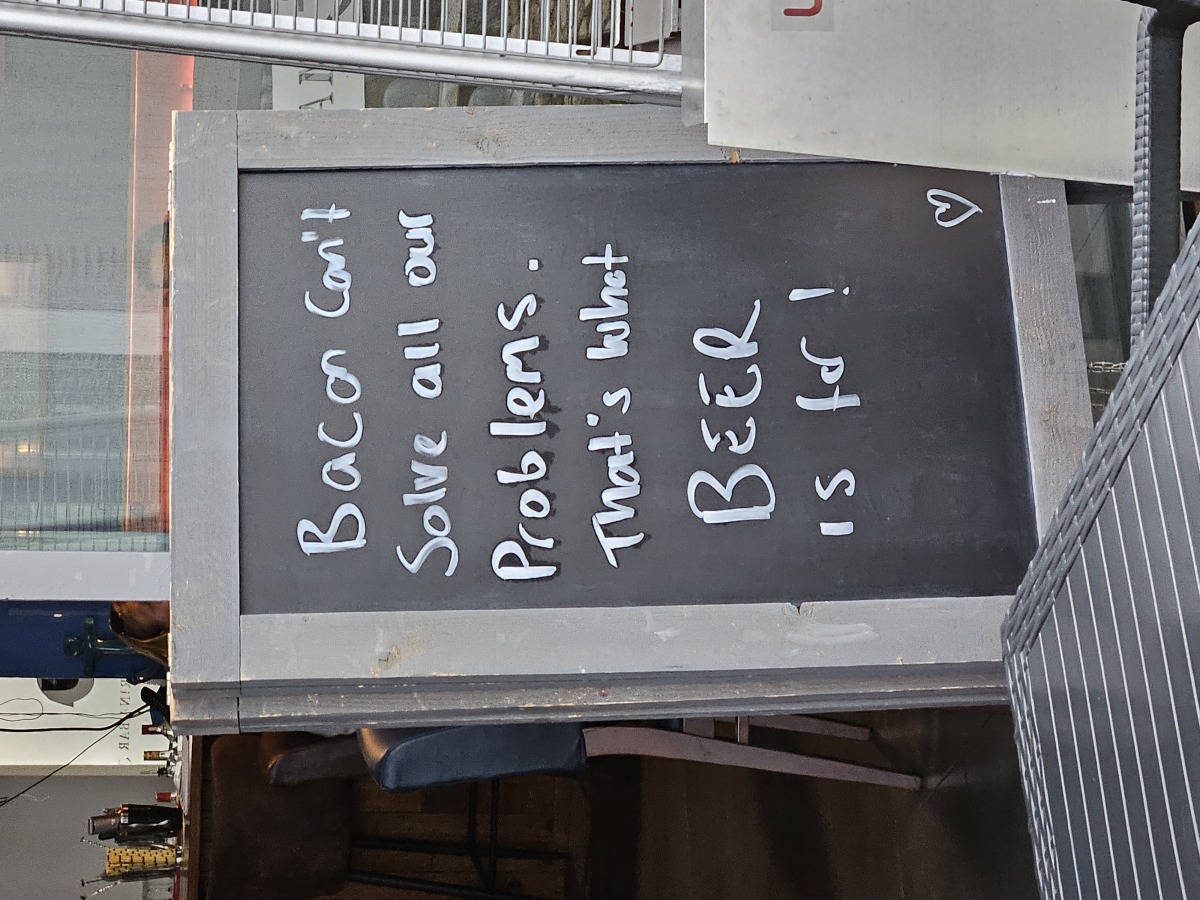 Bacon Can't
Solve all our
Problems.
That's what
BEER
is for!